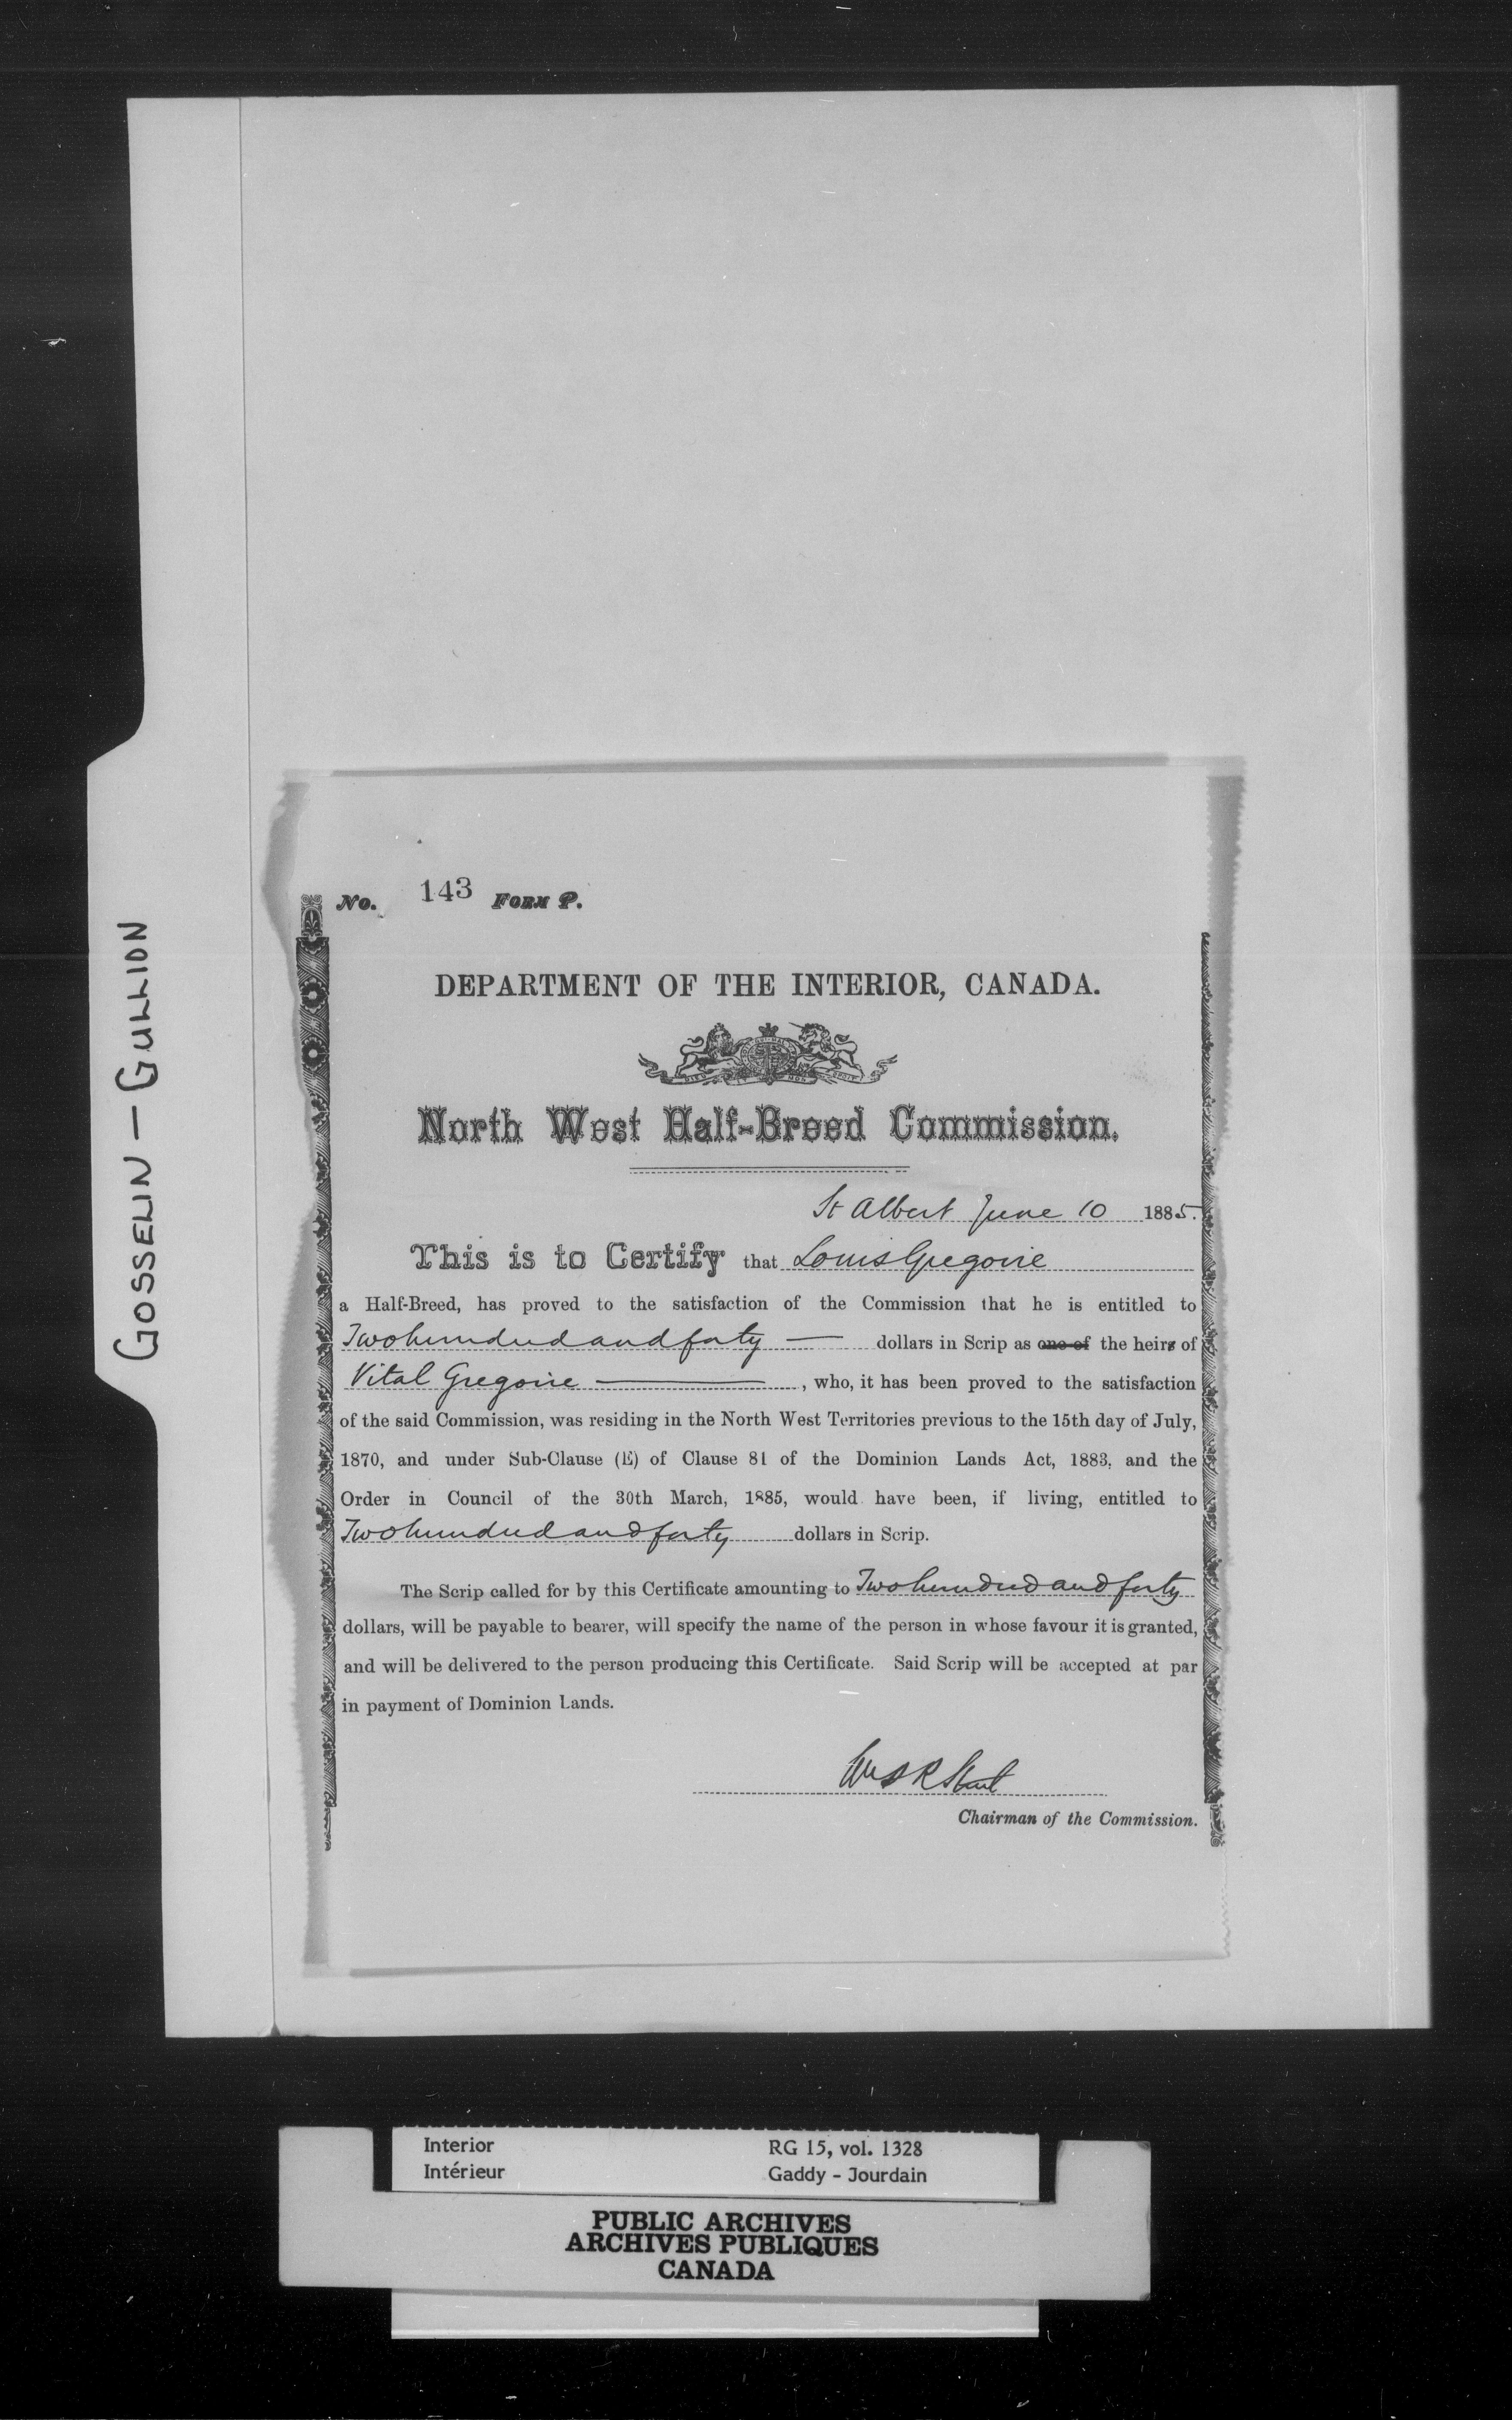 GOSSELIN — GULLION
No. 143 FORM P.
DEPARTMENT OF THE INTERIOR, CANADA.
North West Half-Breed Commission.
St Albert June 10 1885.
This is to Certify that Louis Gregoire
a Half-Breed, has proved to the satisfaction of the Commission that he is entitled to
Two hundred and forty — dollars in Scrip as one of the heirs of
Vital Gregoire ——, who, it has been proved to the satisfaction
of the said Commission, was residing in the North West Territories previous to the 15th day of July,
1870, and under Sub-Clause (E) of Clause 81 of the Dominion Lands Act, 1883, and the
Order in Council of the 30th March, 1885, would have been, if living, entitled to
Two hundred and forty dollars in Scrip.
The Scrip called for by this Certificate amounting to Two hundred and forty
dollars, will be payable to bearer, will specify the name of the person in whose favour it is granted,
and will be delivered to the person producing this Certificate. Said Scrip will be accepted at par
in payment of Dominion Lands.
Chairman of the Commission.
Interior RG 15, vol. 1328
Intérieur Gaddy - Jourdain
PUBLIC ARCHIVES
ARCHIVES PUBLIQUES
CANADA